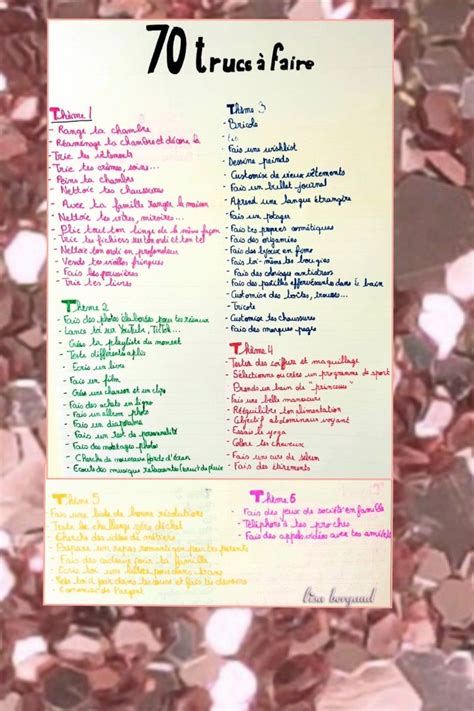 70 trucs à faire
Thème 1
- Range ta chambre
- Réaménage ta chambre et décore la
- Trie tes vêtements
- Trie tes crèmes, soins...
- Peins ta chambre
- Nettoie tes chaussures
- Avec ta famille ranger la maison
- Nettoie tes vitres, miroirs...
- Plie tout ton linge de la même façon
- Trie tes fichiers sur ton ordi et ton tel
- Nettoie ton ordi en profondeur
- Vends tes vieilles fringues
- Fais les poussières
- Trie tes livres
Thème 2
- Fais des photos élaborées pour tes réseaux
- Lance toi sur YouTube, TikTok...
- Crée ta playliste du moment
- Teste différents applis
- Ecris un livre
- Fais un film
- Crée une chanson et un clip
- Fais des achats en ligne
- Fais un album photo
- Fais un diaporama
- Fais un test de personnalité
- Fais des montages photo
- Cherche de nouveaux fonds d'écran
- Ecoute des musiques relaxantes
Thème 3
- Bricole
- Lis
- Fais une wishlist
- Dessine peinds
- Customise de vieux vêtements
- Fais un bullet journal
- Aprend une langue étrangère
- Fais un potager
- Fais tes propres cosmétiques
- Fais des origamies
- Fais des bijoux en fimo
- Fais toi-même tes bougies
- Fais des coloriages antistress
- Fais des pastilles effervescentes dans le bain
- Customise des boîtes, trousse...
- Tricote
- Customise tes chaussures
- Fais des marques pages
Thème 4
- Testes des coiffure et maquillage
- Sélectionne ou crées un programme de sport
- Prends un bain de "princesse"
- Fais une belle manucure
- Rééquilibre ton alimentation
- Objectif abdominaux voyant
- Essaie le yoga
- Colore tes cheveux
- Fais un cure de sérum
- Fais des étirements
Thème 5
- Fais une liste de bonne résolutions
- Teste le challenge zéro déchet
- Cherche des idées de métiers
- Prépare un repas romantique pour tes parents
- Fais des cuisine pour ta famille
- Ecris ton
- Commence de l'argent
Thème 6
- Fais des jeux de sociétés en famille
- Téléphone à tes proches
- Fais des appels vidéos avec tes ami(e)s